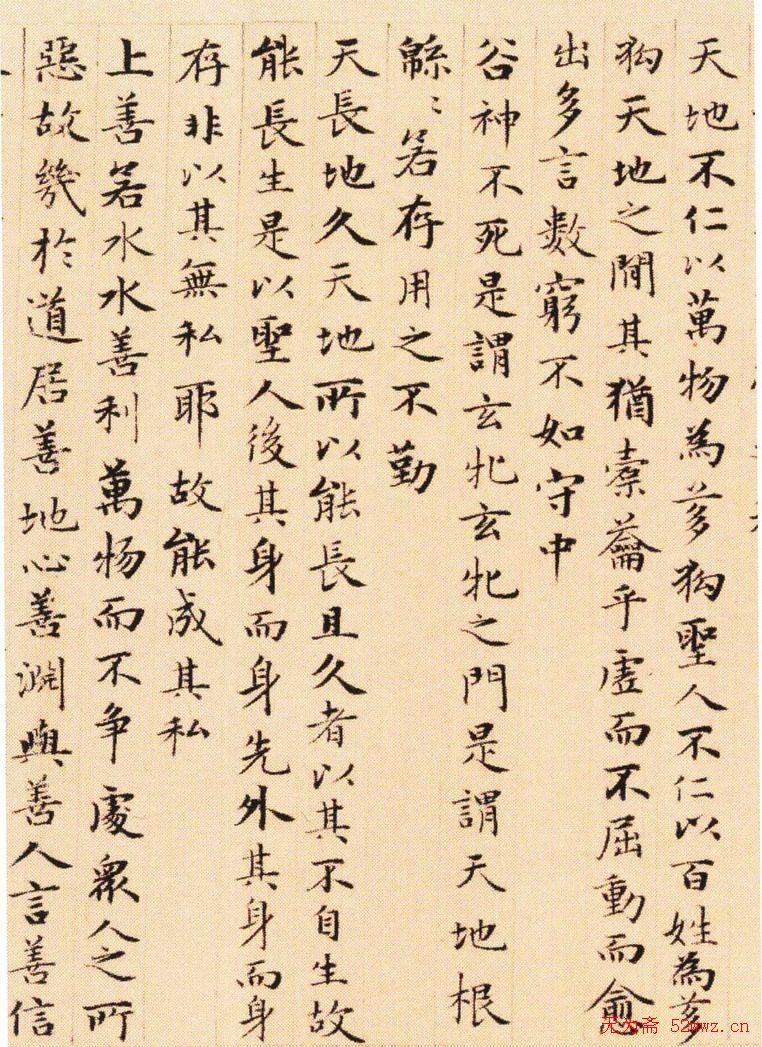 天地不仁以萬物為芻狗聖人不仁以百姓為芻
狗天地之間其猶橐籥乎虛而不屈動而愈
出多言數窮不如守中
谷神不死是謂玄牝玄牝之門是謂天地根
緜〻若存用之不勤
天長地久天地所以能長且久者以其不自生故
能長生是以聖人後其身而身先外其身而身
存非以其無私耶故能成其私
上善若水水善利萬物而不争處衆人之所
惡故幾於道居善地心善淵與善人言善信
无为斋 52wwz.cn